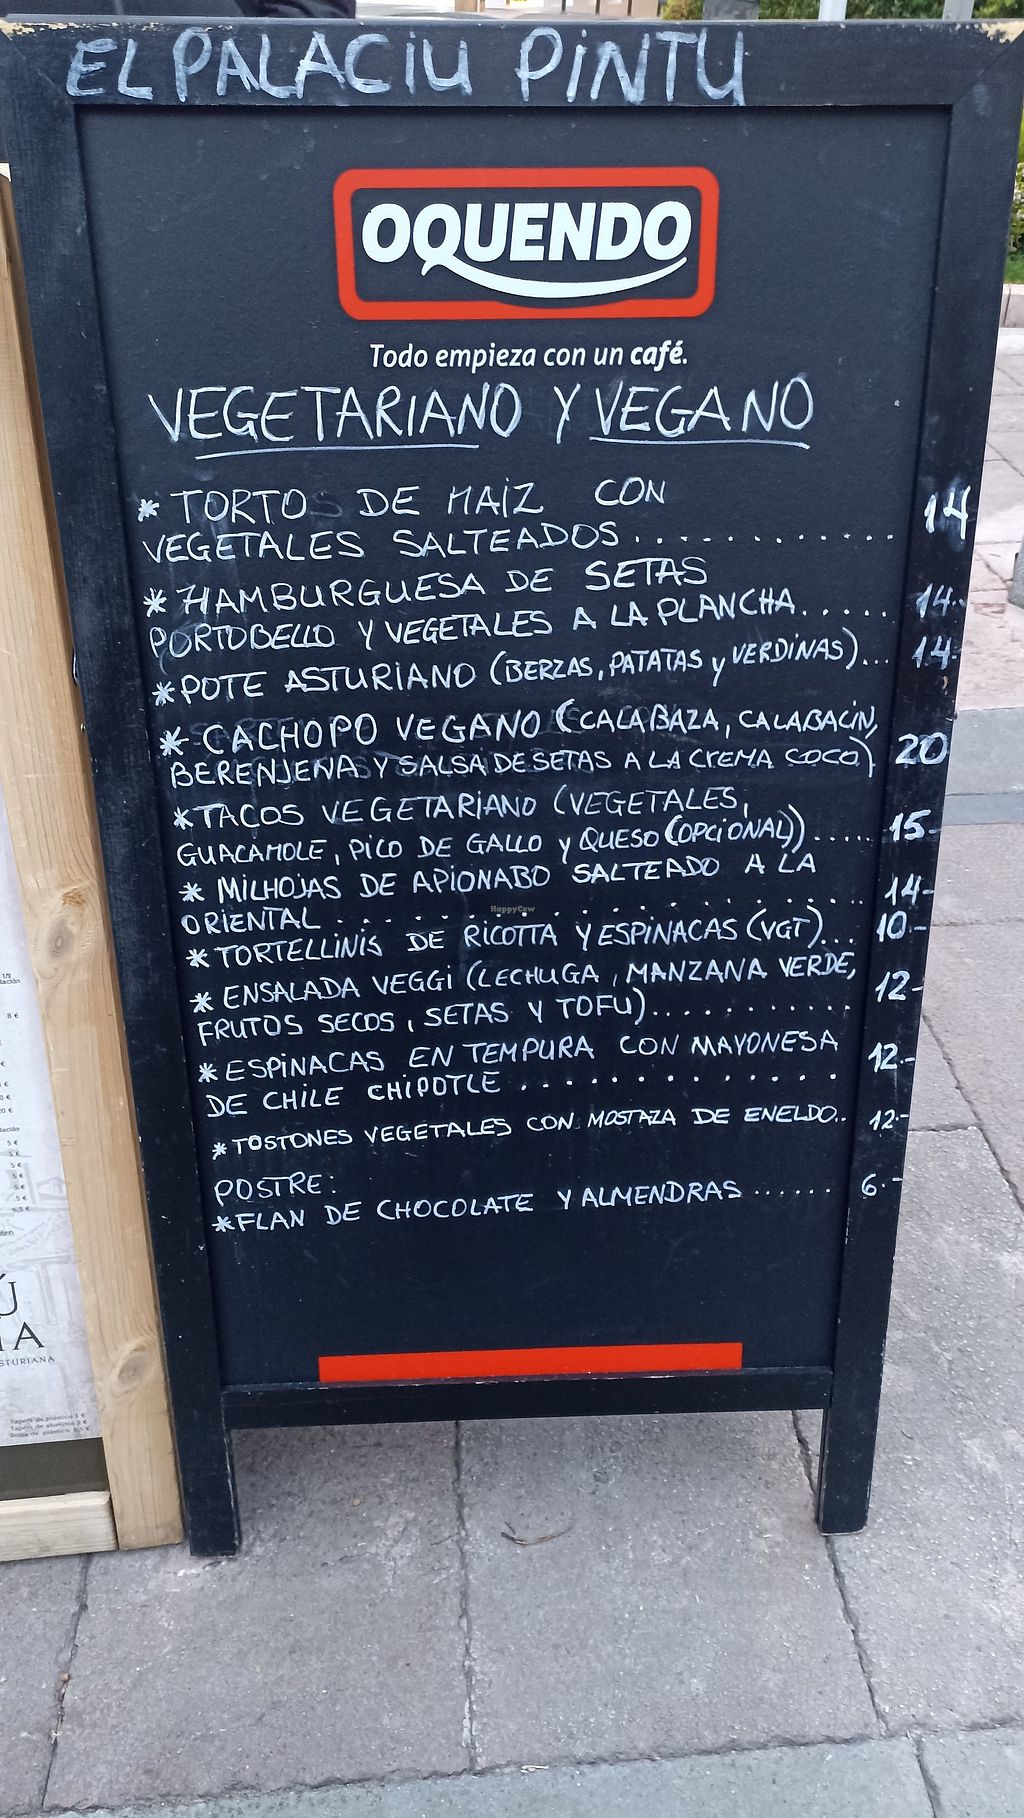 EL PALACIU PINTU
OQUENDO
Todo empieza con un café.
VEGETARIANO Y VEGANO
* TORTOS DE MAIZ CON
VEGETALES SALTEADOS............ 14
* HAMBURGUESA DE SETAS
PORTOBELLO Y VEGETALES A LA PLANCHA..... 14.-
* POTE ASTURIANO (BERZAS, PATATAS y VERDINAS)... 14.-
* CACHOPO VEGANO (CALABAZA, CALABACIN,
BERENJENA Y SALSA DE SETAS A LA CREMA COCO) 20
* TACOS VEGETARIANO (VEGETALES,
GUACAMOLE, PICO DE GALLO y QUESO (OPCIONAL))...... 15-
* MILHOJAS DE APIONABO SALTEADO A LA
ORIENTAL .................... 14-
* TORTELLINIS DE RICOTTA Y ESPINACAS (VGT)... 10.-
* ENSALADA VEGGI (LECHUGA, MANZANA VERDE,
FRUTOS SECOS, SETAS Y TOFU)........... 12-
* ESPINACAS EN TEMPURA CON MAYONESA
DE CHILE CHIPOTLE ............. 12.-
* TOSTONES VEGETALES CON MOSTAZA DE ENELDO.. 12.-
POSTRE:
* FLAN DE CHOCOLATE Y ALMENDRAS ...... 6.-
HappyCow
8 €
5 €
5 €
5 €
5 €
5 €
6,5 €
Tapers de plástico 1 €
Tapers de aluminio 2 €